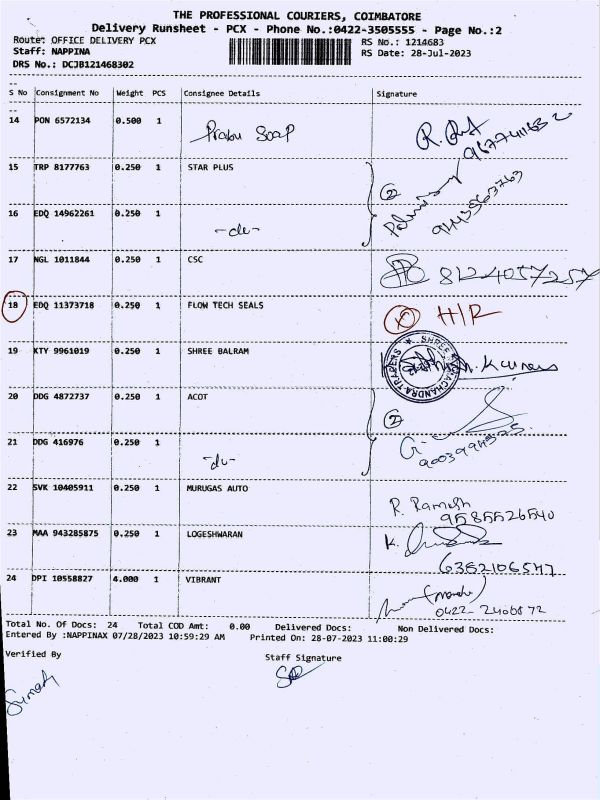 THE PROFESSIONAL COURIERS, COIMBATORE
Delivery Runsheet - PCX - Phone No.:0422-3505555 - Page No.:2
Route: OFFICE DELIVERY PCX
RS No.: 1214683
Staff: NAPPINA
RS Date: 28-Jul-2023
DRS No.: DCJB121468302
S No Consignment No Weight PCS Consignee Details Signature
14 PON 6572134 0.500 1 Prabu Soap
15 TRP 8177763 0.250 1 STAR PLUS
16 EDQ 14962261 0.250 1 -do-
17 NGL 1011844 0.250 1 CSC 8124057257
18 EDQ 11373718 0.250 1 FLOW TECH SEALS H/R
19 KTY 9961019 0.250 1 SHREE BALRAM
20 DDG 4872737 0.250 1 ACOT
21 DDG 416976 0.250 1 -do-
22 SVK 10405911 0.250 1 MURUGAS AUTO R. Ramesh
9585526540
23 MAA 943285875 0.250 1 LOGESHWARAN K.
6382106547
24 DPI 10558827 4.000 1 VIBRANT
Total No. Of Docs: 24 Total COD Amt: 0.00 Delivered Docs: Non Delivered Docs:
Entered By :NAPPINAX 07/28/2023 10:59:29 AM Printed On: 28-07-2023 11:00:29
Verified By Staff Signature